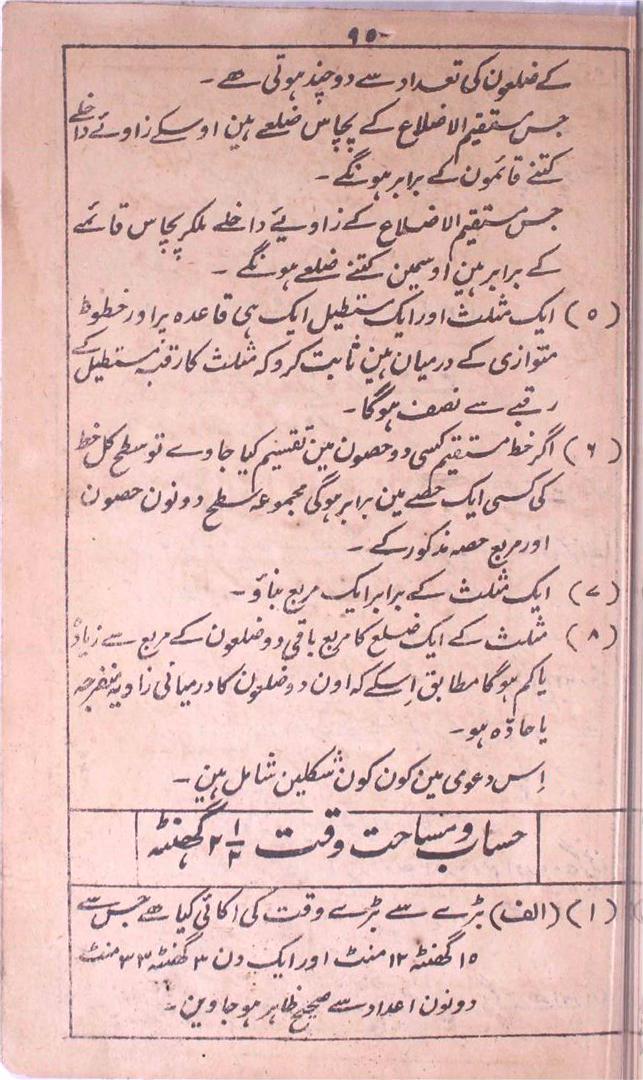 ۹۵
کے ضلعون کی تعداد سے دوچند ہوتی ہے۔
جس مستقیم الاضلاع کے پچاس ضلعے ہین اوسکے زاوئے داخلے
کتنے قائمون کے برابر ہونگے۔
جس مستقیم الاضلاع کے زاویئے داخلے ملکر پچاس قائمے
کے برابر ہین اوسمین کتنے ضلعے ہونگے۔
(۵) ایک مثلث اور ایک مستطیل ایک ہی قاعدہ پر اور خطوط
متوازی کے درمیان ہین ثابت کرو کہ مثلث کا رقبہ مستطیل کے
رقبے سے نصف ہوگا۔
(۶) اگر خط مستقیم کسی دو حصون مین تقسیم کیا جاوے تو سطح کل خط
کی کسی ایک حصے مین برابر ہوگی مجموعہ سطح دونون حصون
اور مربع حصہ مذکور کے۔
(۷) ایک مثلث کے برابر ایک مربع بناؤ۔
(۸) مثلث کے ایک ضلع کا مربع باقی دو ضلعون کے مربع سے زیادہ
یا کم ہوگا مطابق اِسکے کہ اون دو ضلعون کا درمیانی زاویہ منفرجہ
یا حادّہ ہو۔
اِس دعوی مین کون کون شکلین شامل ہین۔
حساب و مساحت وقت ۲ ۱/۲ گھنٹہ
(۱) (الف) بڑے سے بڑے وقت کی اکائی کیا ہے جس سے
۱۵ گھنٹہ ۱۲ منٹ اور ایک دن ۳ گھنٹہ ۳۳ منٹ
دونون اعداد سے صحیح ظاہر ہو جاوین۔